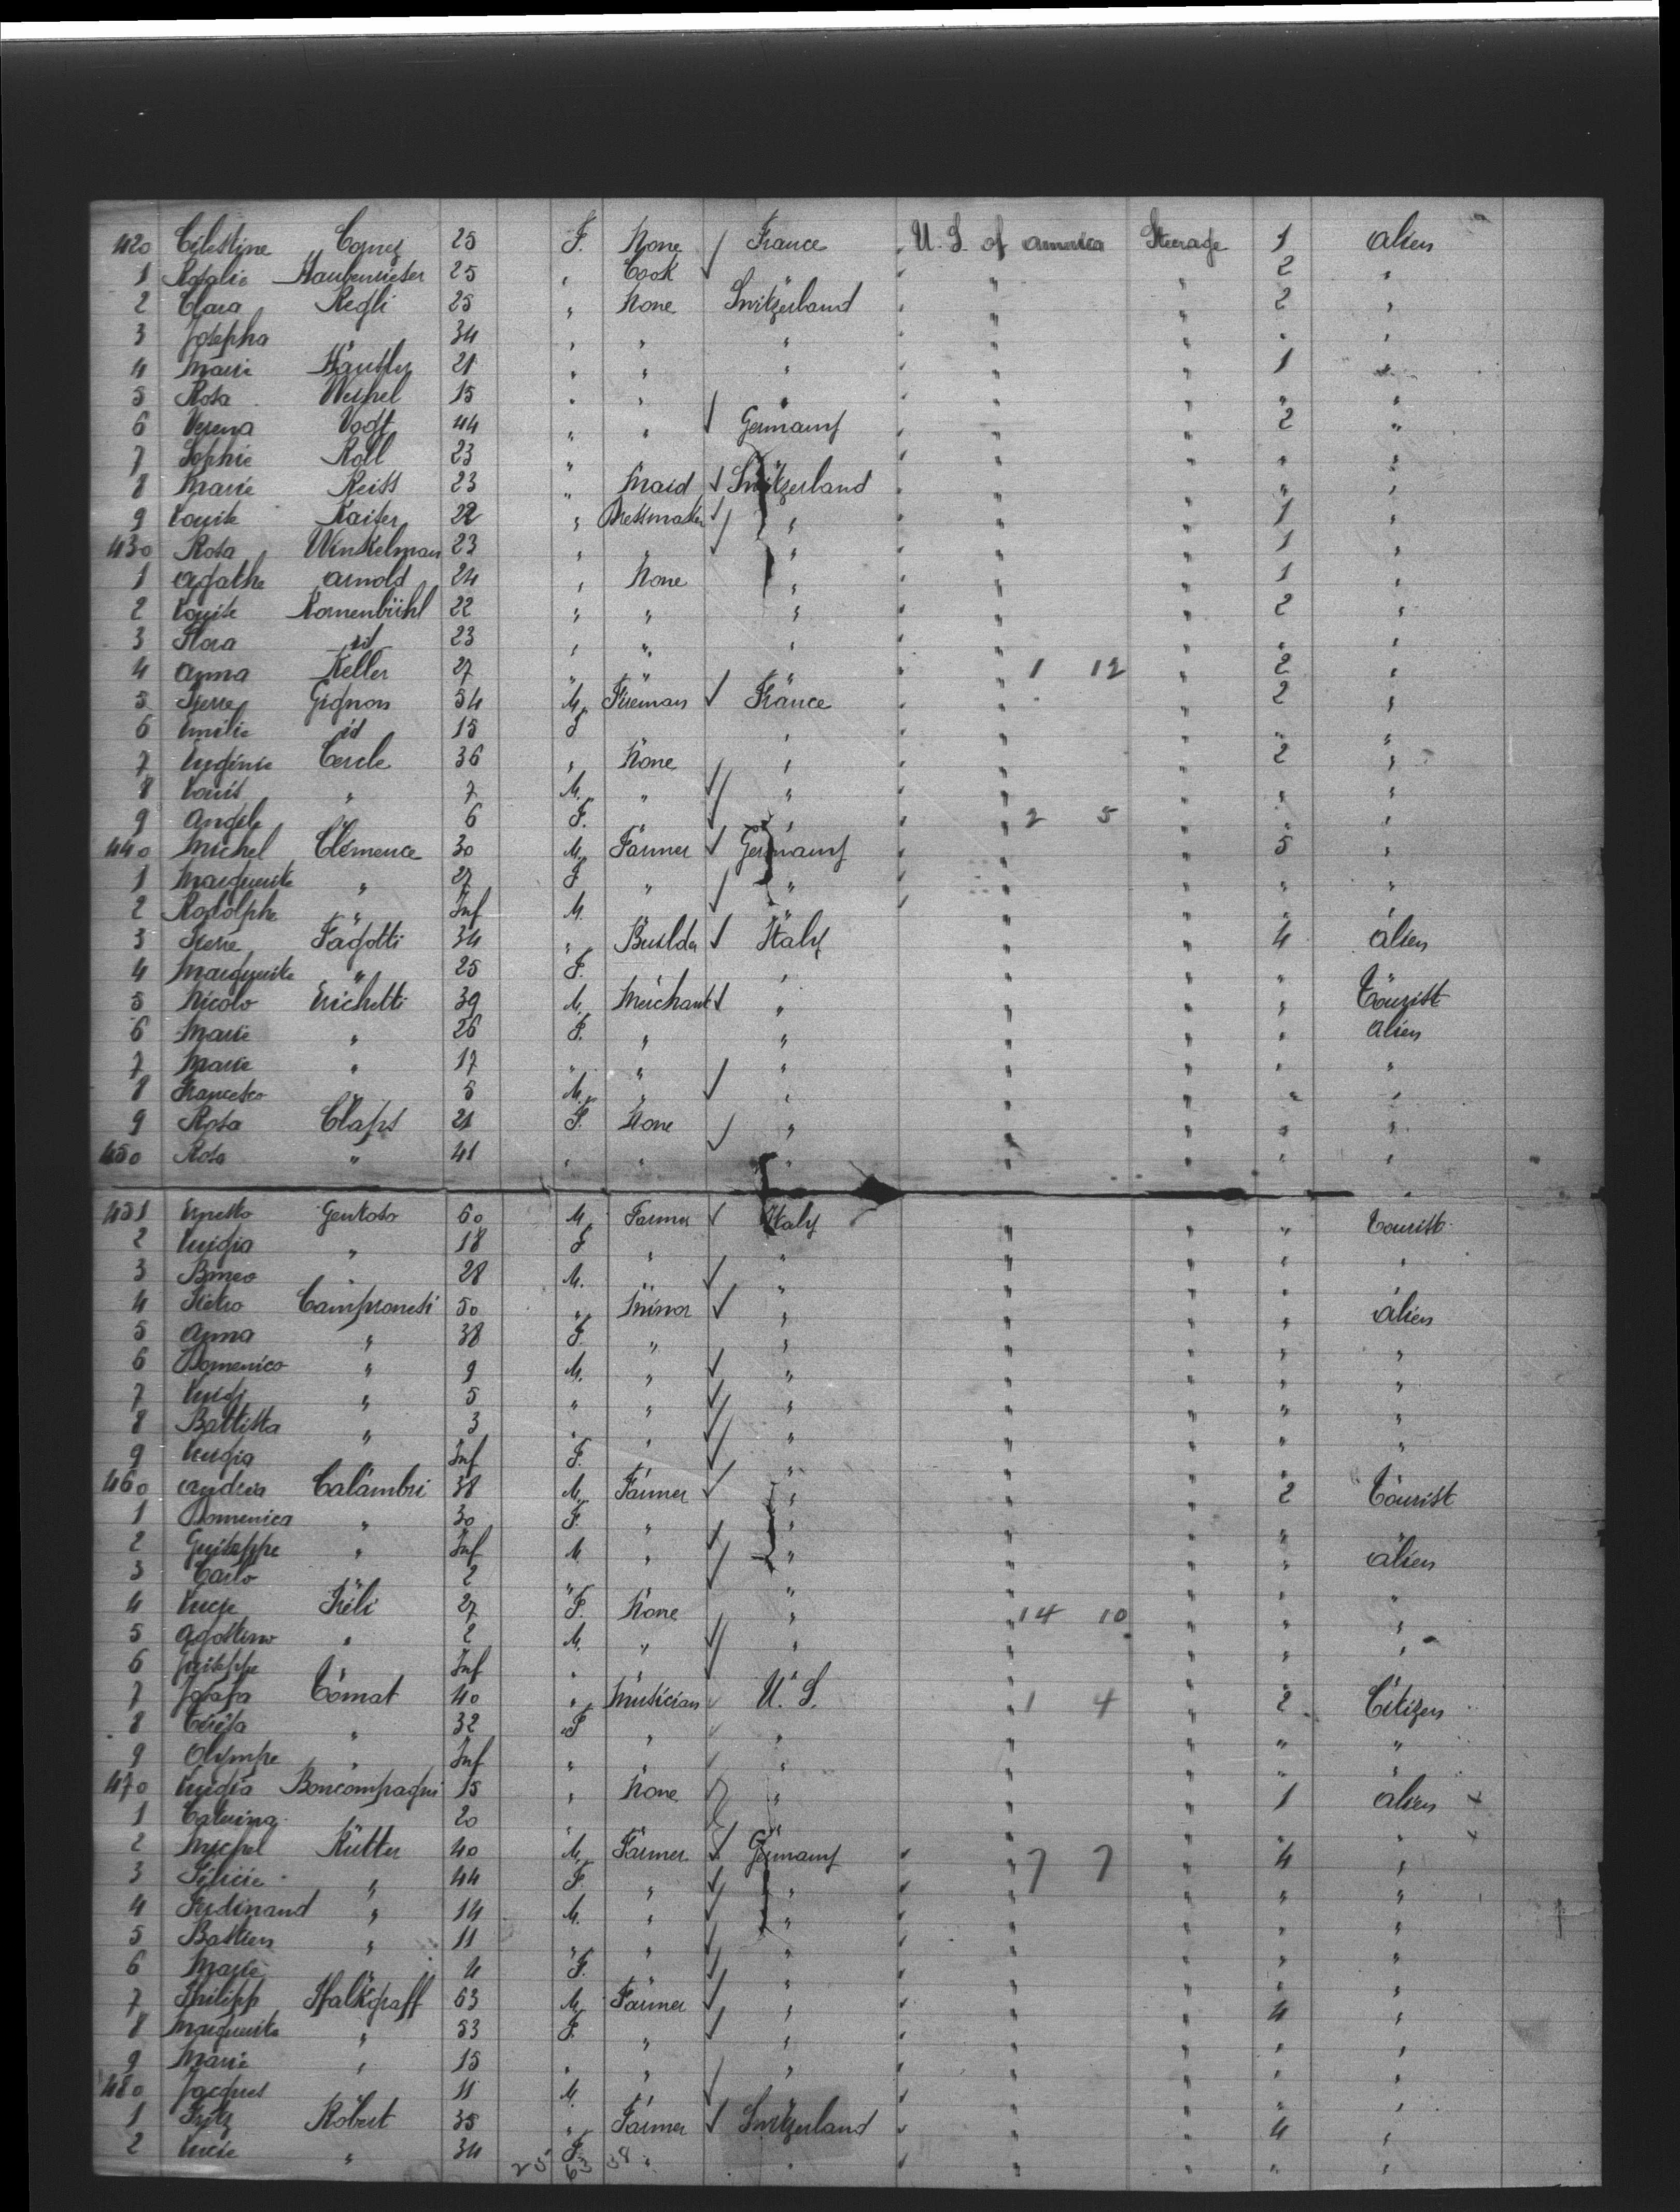 420 Célestine 25 F. None France U.S. of america Steerage 1 alien
1 Rosalie 25 " Cook " " " 2 "
2 Clara Regli 25 " None Switzerland " " 2 "
3 Josepha " 34 " " " " " " "
4 Marie 21 " " " " " 1 "
5 Rosa Weibel 15 " " " " " " "
6 Verena Vogt 44 " " Germany " " 2 "
7 Sophie Roll 23 " " " " " " "
8 Marie Reiss 23 " Maid Switzerland " " " "
9 Louise Kaiser 22 " Dressmaker " " " 1 "
430 Rosa Winkelman 23 " " " " " 1 "
1 Agathe Arnold 24 " None " " " 1 "
2 Louise Romenbühl 22 " " " " " 2 "
3 Flora id 23 " " " " " " "
4 Anna Keller 27 " " " " 1 12 " 2 "
5 Pierre Gignon 54 M. Fireman France " " 2 "
6 Emilie id 15 F " " " " " "
7 Eugénie Cercle 36 " None " " " 2 "
8 Louis " 7 M. " " " " " "
9 Angèle " 6 F. " " " 2 5 " " "
440 Michel Clémence 30 M. Farmer Germany " " 5 "
1 Marguerite " 27 F " " " " " "
2 Rodolphe " Inf M. " " " " " "
3 Pierre Fagotti 34 " Builder Italy " " 4 alien
4 Marguerite " 25 F. " " " " " "
5 Nicolo Erichetti 39 M. Merchant " " " " Tourist
6 Marie " 26 F. " " " " " alien
7 Marie " 17 " " " " " " "
8 Francesco " 5 M. " " " " " "
9 Rosa Claps 21 F. None " " " " "
450 Rosa " 41 " " " " " " "
451 Ernesto Gentoso 60 M. Farmer Italy " " " Tourist
2 Luigia " 18 F. " " " " " "
3 Borneo " 28 M. " " " " " "
4 Pietro Campronesi 50 " Minor " " " " alien
5 Anna " 38 F. " " " " " "
6 Domenico " 9 M. " " " " " "
7 Luigi " 5 " " " " " " "
8 Battista " 3 " " " " " " "
9 Luigia " Inf F. " " " " " "
460 Andrea Calambri 38 M. Farmer " " " 2 Tourist
1 Domenica " 30 F. " " " " " "
2 Guiseppe " Inf M. " " " " " alien
3 Carlo " 2 " " " " " " "
4 Lucie 27 F. None " " 14 10 " " "
5 Agostino " 2 M. " " " " " "
6 Guiseppe " Inf " " " " " " "
7 Comat 40 " Musician U.S. " 1 4 " 2 Citizen
8 " 32 F " " " " " "
9 Olympe " Inf " " " " " " "
470 Luigia Boncompagni 15 " None " " " 1 alien x
1 20 " " " " " " " x
2 Michel Rutter 40 M. Farmer Germany " 7 7 " 4 "
3 Félicie " 44 F. " " " " " "
4 Ferdinand " 14 M. " " " " " "
5 Bastien " 11 " " " " " " "
6 Marie " 4 F. " " " " " "
7 Philipp Halkgraff 63 M. Farmer " " " 4 "
8 Marguerite " 53 F. " " " " " "
9 Marie " 15 " " " " " " "
480 Jacques " 11 M. " " " " " "
1 Fritz Robert 35 " Farmer Switzerland " " 4 "
2 Lucie " 34 F. " " " " " "
25 63 38